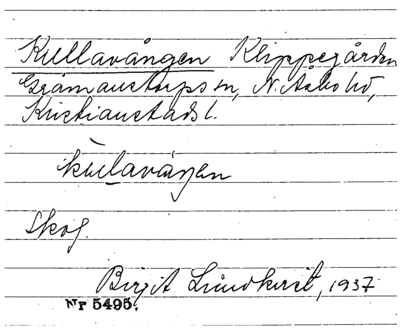 Kullavången Klippegården
Gråmanstorps sn, N. Åsbo hd,
Kristianstads l.
kulavåŋen
Skog.
Birgit Lindkvist, 1937
Nr 5495.